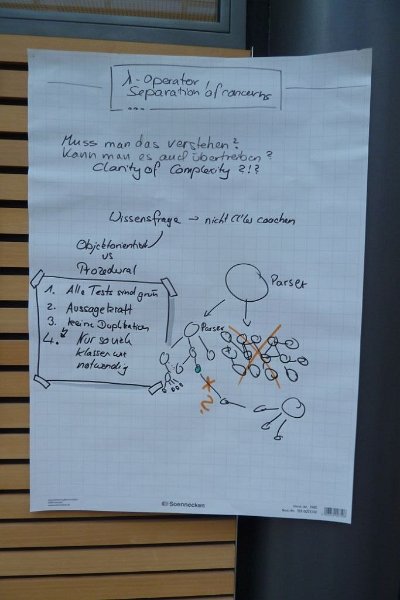 λ-Operator
Separation of concerns
...
Muss man das verstehen?
Kann man es auch übertreiben?
Clarity of Complexity ?!?
Wissensfrage → nicht
coachen
Objektorientiert
vs
Prozedural
1. Alle Tests sind grün
2. Aussagekraft
3. Keine Duplikation
4. Nur so viele
Klassen wie
notwendig
Parser
Parser
Soennecken